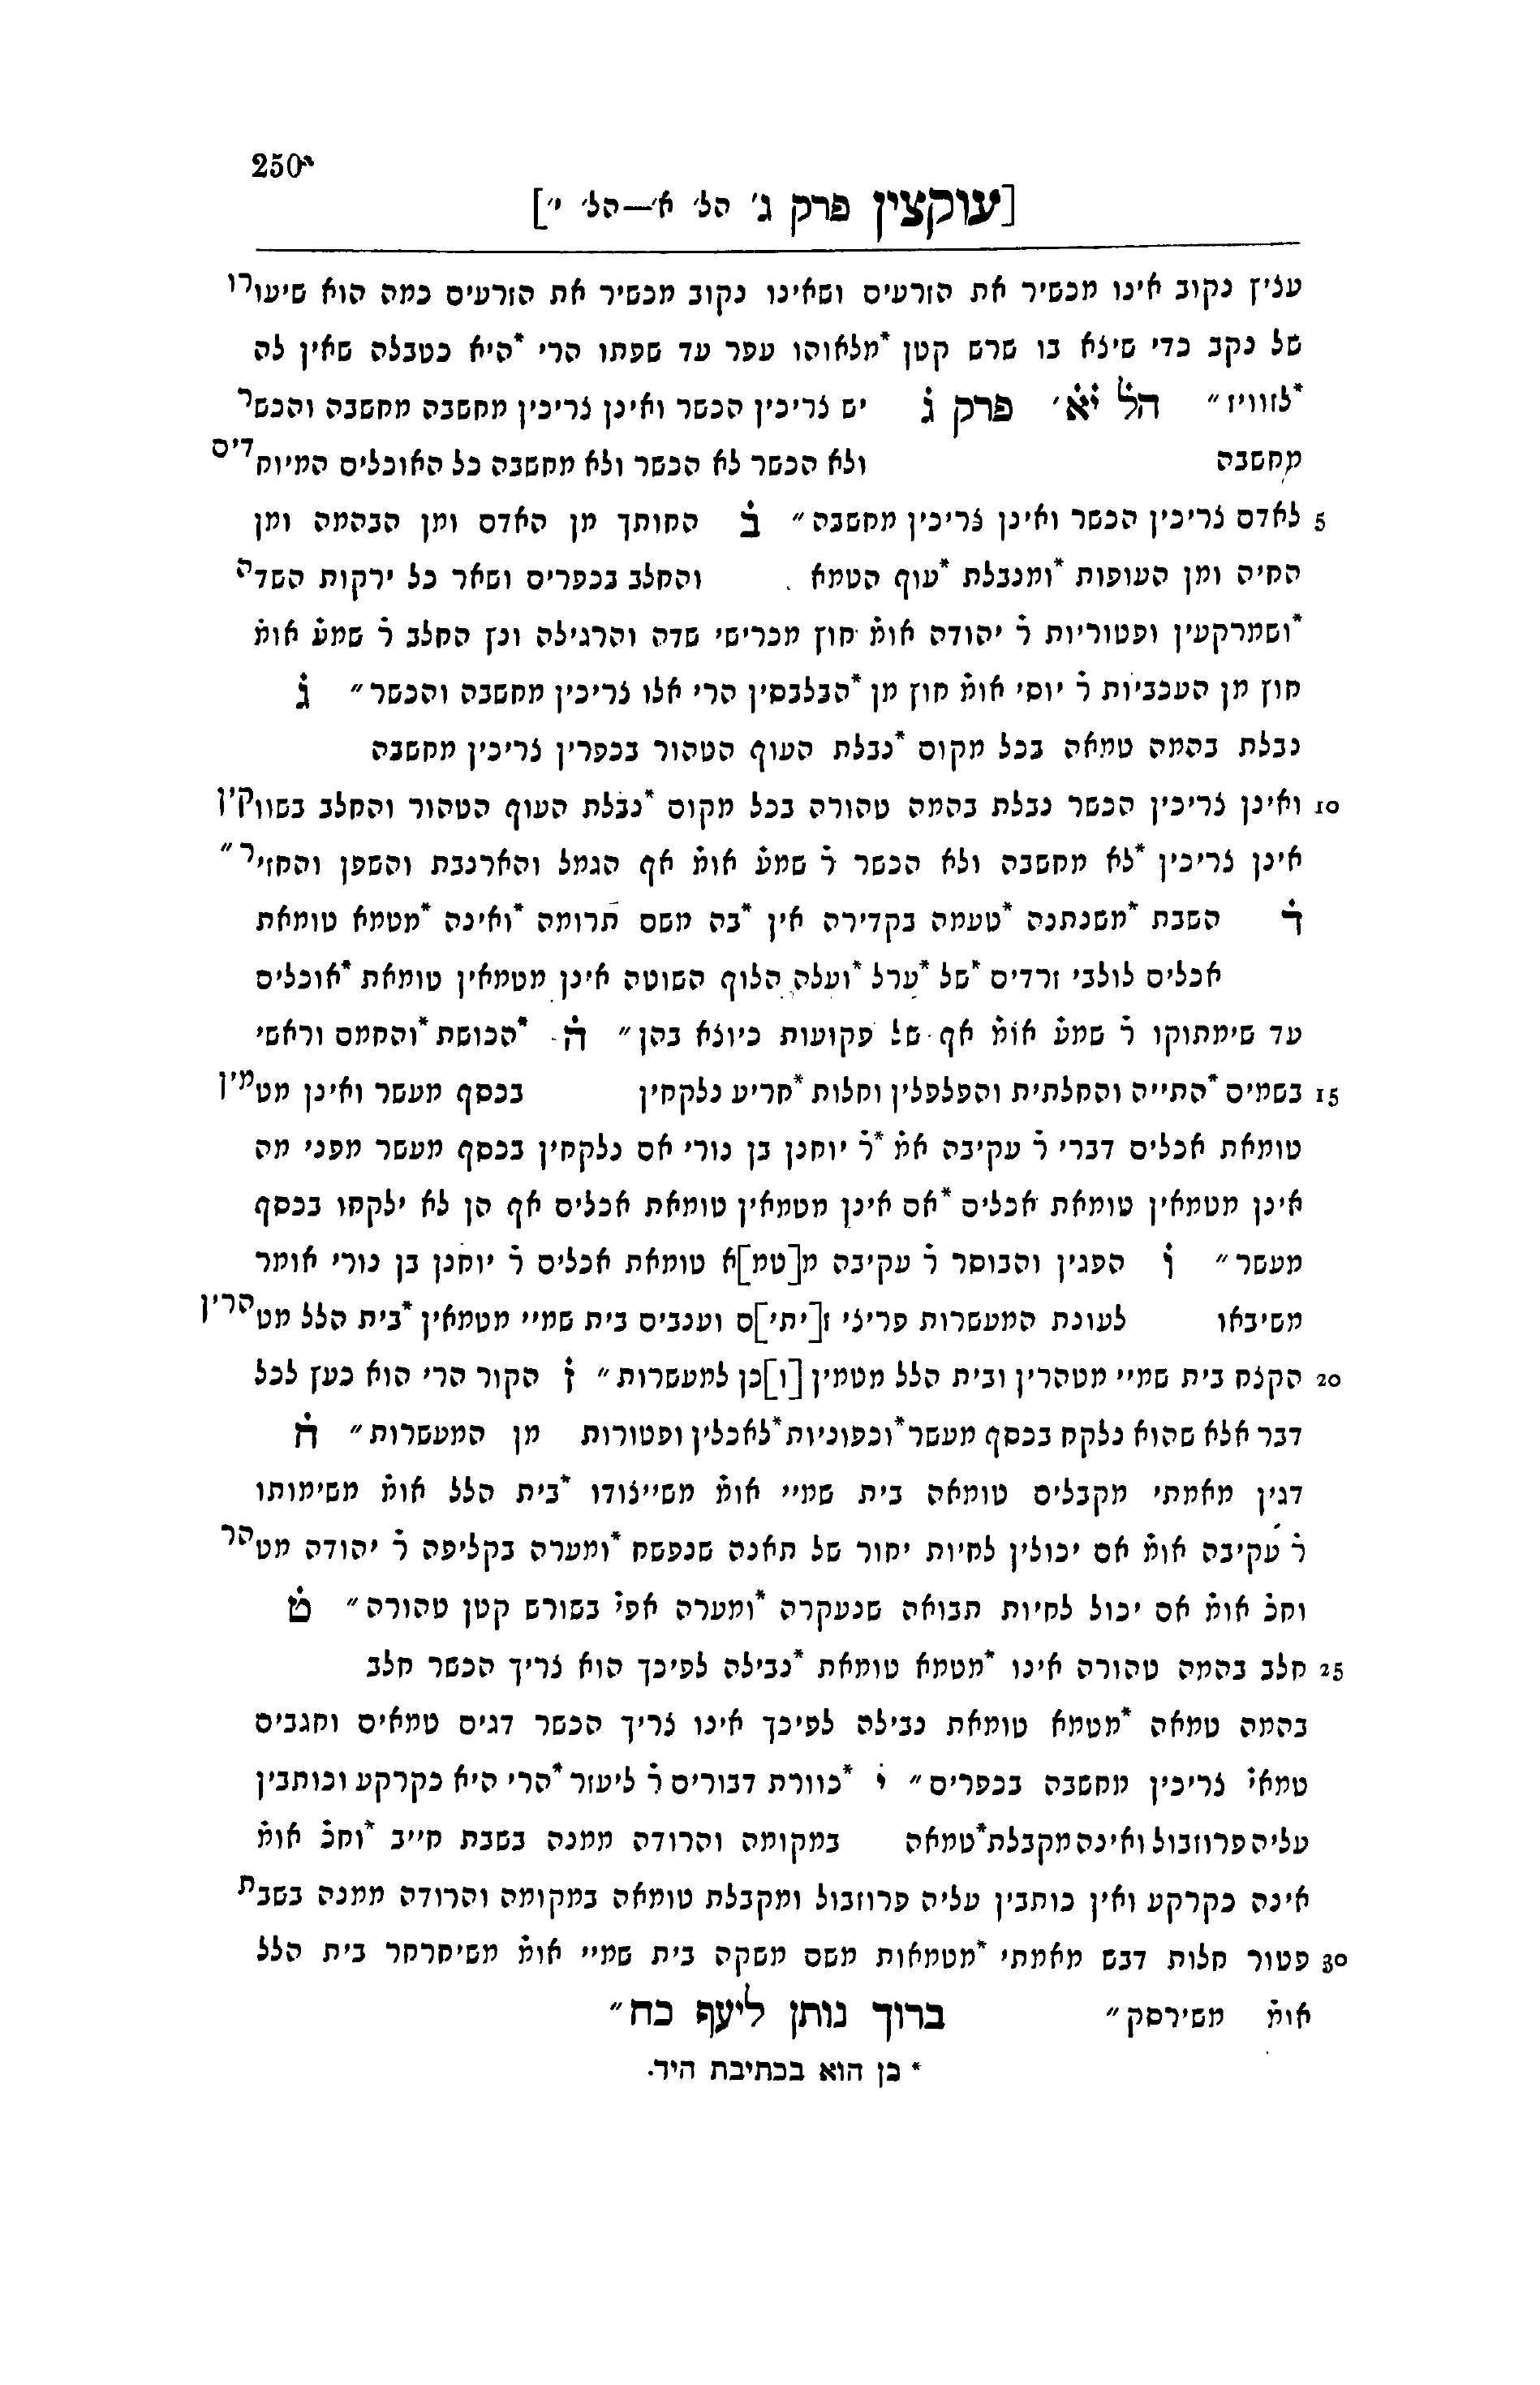 250ᵃ
[עוקצין פרק ג׳ הל׳ א׳—הל׳ י׳]
עציץ נקוב אינו מכשיר את הזרעים ושאינו נקוב מכשיר את הזרעים כמה הוא שיעורו
של נקב כדי שיצא בו שרש קטן *מלאוהו עפר עד שפתו הרי *היא כטבלה שאין לה
*לזוויז״ הל׳ יא׳ פרק ג̇ יש צריכין הכשר ואינן צריכין מחשבה מחשבה והכשר
מחשבה ולא הכשר לא הכשר ולא מחשבה כל האוכלים המיוחדים
5 לאדם צריכין הכשר ואינן צריכין מחשבה״ ב̇ החותך מן האדם ומן הבהמה ומן
החיה ומן העופות *ומנבלת *עוף הטמא והחלב בכפרים ושאר כל ירקות השדה
*ושמרקעין ופטוריות ר̇ יהודה אומ̇ חוץ מכרישי שדה והרגילה ונץ החלב ר̇ שמע̇ אומ̇
חוץ מן העכביות ר̇ יוסי אומ̇ חוץ מן *הבלבסין הרי אלו צריכין מחשבה והכשר״ ג̇
נבלת בהמה טמאה בכל מקום *נבלת העוף הטהור בכפרין צריכין מחשבה
10 ואינן צריכין הכשר נבלת בהמה טהורה בכל מקום *נבלת העוף הטהור והחלב בשווקין
אינן צריכין *לא מחשבה ולא הכשר ר̇ שמע̇ אומ̇ אף הגמל והארנבת והשפן והחזיר״
ד̇ השבת *משנתנה *טעמה בקדירה אין *בה משם תרומה *ואינה *מטמא טומאת
אכלים לולבי זרדים *של *ערל *ועלה הלוף השוטה אינן מטמאין טומאת *אוכלים
עד שימתוקו ר̇ שמע̇ אומ̇ אף של פקועות כיוצא בהן״ ה̇ *הכושת *והחמס וראשי
15 בשמים *התייה והחלתית והפלפלין וחלות *חריע נלקחין בכסף מעשר ואינן מטמין
טומאת אכלים דברי ר̇ עקיבה אמ̇ *ר̇ יוחנן בן נורי אם נלקחין בכסף מעשר מפני מה
אינן מטמאין טומאת אכלים *אם אינן מטמאין טומאת אכלים אף הן לא ילקחו בכסף
מעשר״ ו̇ הפגין והבוסר ר̇ עקיבה מ[טמ]א טומאת אכלים ר̇ יוחנן בן נורי אומר
משיבאו לעונת המעשרות פריצי ז[יתי]ם וענבים בית שמיי מטמאין *בית הלל מטהרין
20 הקצח בית שמיי מטהרין ובית הלל מטמין [ו]כן למעשרות״ ז̇ הקור הרי הוא כעץ לכל
דבר אלא שהוא נלקח בכסף מעשר *וכפוניות *לאכלין ופטורות מן המעשרות״ ח̇
דגין מאמתי מקבלים טומאה בית שמיי אומ̇ משייצודו *בית הלל אומ̇ משימותו
ר̇ עקיבה אומ̇ אם יכולין לחיות יחור של תאנה שנפשח *ומערה בקליפה ר̇ יהודה מטהר
וחכ̇ אומ̇ אם יכול לחיות תבואה שנעקרה *ומערה אפי̇ בשורש קטן טהורה״ ט̇
25 חלב בהמה טהורה אינו *מטמא טומאת *נבילה לפיכך הוא צריך הכשר חלב
בהמה טמאה *מטמא טומאת נבילה לפיכך אינו צריך הכשר דגים טמאים וחגבים
טמאי̇ צריכין מחשבה בכפרים״ י̇ *כוורת דבורים ר̇ ליעזר *הרי היא כקרקע וכותבין
עליה פרוזבול ואינה מקבלת *טמאה במקומה והרודה ממנה בשבת חייב *וחכ̇ אומ̇
אינה כקרקע ואין כותבין עליה פרוזבול ומקבלת טומאה במקומה והרודה ממנה בשבת
30 פטור חלות דבש מאמתי *מטמאות משם משקה בית שמיי אומ̇ משיחרחר בית הלל
אומ̇ משירסק״ ברוך נותן ליעף כח״
* כן הוא בכתיבת היד.